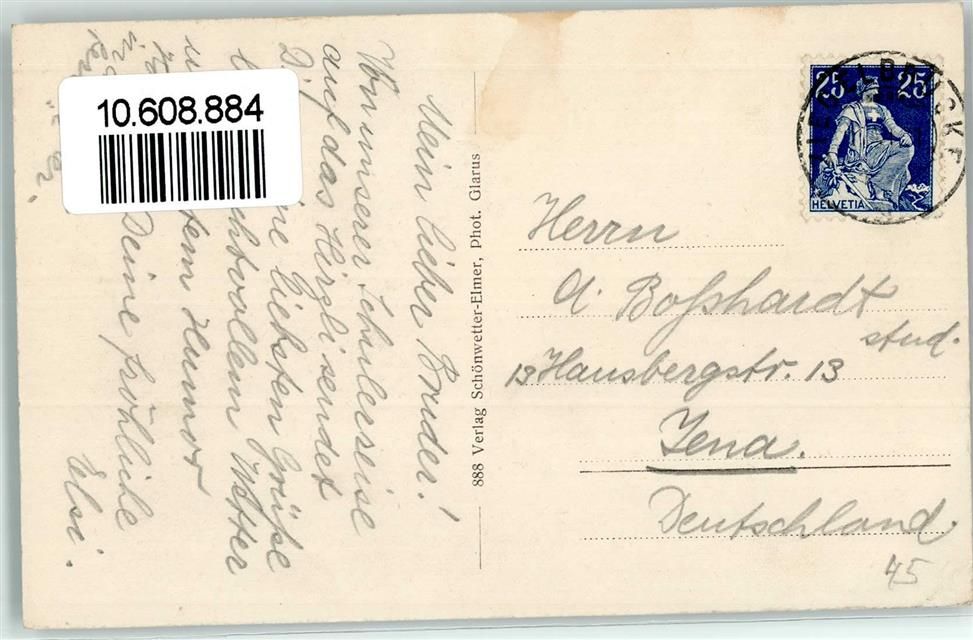 10.608.884
Mein lieber Bruder!
Von unserer Schulerreise
auf das Hirzli sendet
Dir
liebsten Grüsse
Wetter
Humor
Deine fröhliche
Elsi.
888 Verlag Schönwetter-Elmer, Phot. Glarus
25 25
HELVETIA
Herrn
A. Boßhardt
stud.
13 Hausbergstr. 13
Jena.
Deutschland.
45